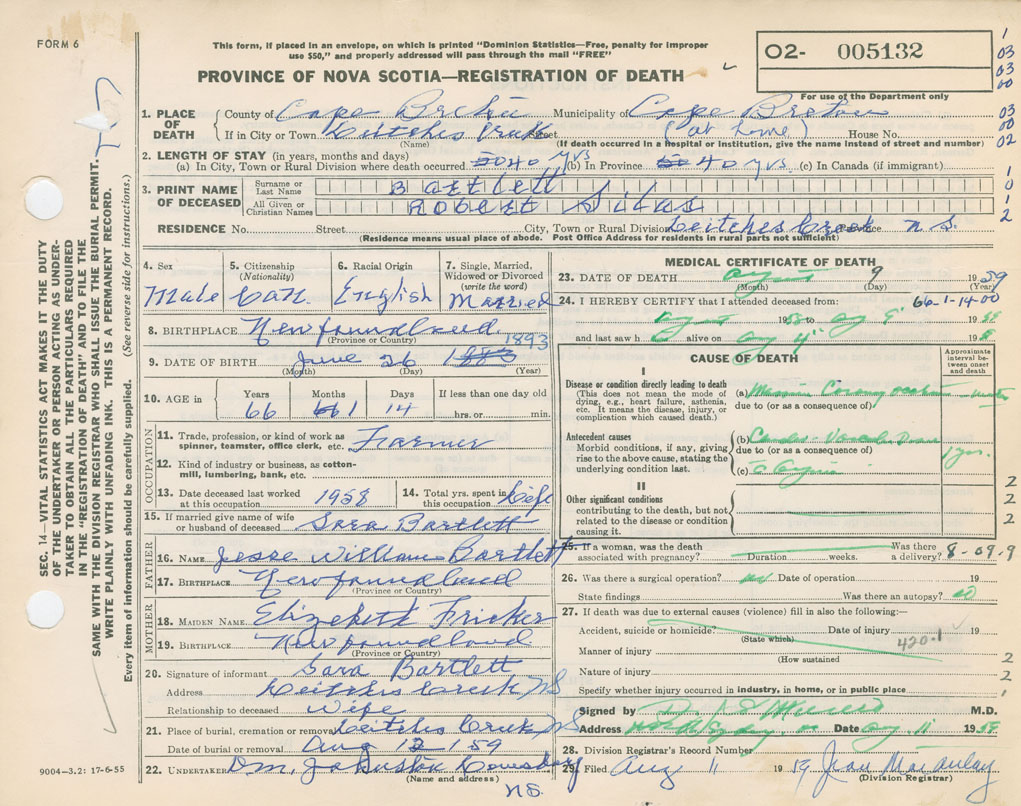 FORM 6
This form, if placed in an envelope, on which is printed "Dominion Statistics—Free, penalty for improper
use $50," and properly addressed will pass through the mail "FREE"
O2- 005132
For use of the Department only
PROVINCE OF NOVA SCOTIA—REGISTRATION OF DEATH
1. PLACE OF DEATH
County of Cape Breton Municipality of Cape Breton
If in City or Town Leitches Creek Street (at home) House No.
(Name) (If death occurred in a hospital or institution, give the name instead of street and number)
2. LENGTH OF STAY (in years, months and days)
(a) In City, Town or Rural Division where death occurred 40 yrs (b) In Province 40 yrs. (c) In Canada (if immigrant)
3. PRINT NAME OF DECEASED
Surname or Last Name Bartlett
All Given or Christian Names Robert Silas
RESIDENCE No. Street City, Town or Rural Division Leitches Creek N.S.
(Residence means usual place of abode. Post Office Address for residents in rural parts not sufficient)
4. Sex Male
5. Citizenship (Nationality) Can.
6. Racial Origin English
7. Single, Married, Widowed or Divorced (write the word) Married
8. BIRTHPLACE Newfoundland
(Province or Country)
9. DATE OF BIRTH June 26 1883 1893
(Month) (Day) (Year)
10. AGE in Years 66 Months 1 Days 14 If less than one day old hrs. or min.
OCCUPATION
11. Trade, profession, or kind of work as spinner, teamster, office clerk, etc. Farmer
12. Kind of industry or business, as cotton-mill, lumbering, bank, etc.
13. Date deceased last worked at this occupation 1958
14. Total yrs. spent in this occupation Life
15. If married give name of wife or husband of deceased Sara Bartlett
FATHER
16. NAME Jesse William Bartlett
17. BIRTHPLACE Newfoundland
(Province or Country)
MOTHER
18. MAIDEN NAME Elizabeth Fricker
19. BIRTHPLACE Newfoundland
(Province or Country)
20. Signature of informant Sara Bartlett
Address Leitches Creek NS
Relationship to deceased Wife
21. Place of burial, cremation or removal Leitches Creek NS
Date of burial or removal Aug 12 1959
22. UNDERTAKER D.M. Johnston
(Name and address)
N.S.
MEDICAL CERTIFICATE OF DEATH
23. DATE OF DEATH August 9 1959
(Month) (Day) (Year)
24. I HEREBY CERTIFY that I attended deceased from: 66-1-14 00
August 19 to Aug 9 19
and last saw h alive on Aug 19
CAUSE OF DEATH
Approximate interval between onset and death
I
Disease or condition directly leading to death
(This does not mean the mode of dying, e.g., heart failure, asthenia, etc. It means the disease, injury, or complication which caused death.)
(a) Massive Coronary occlusion
due to (or as a consequence of)
Antecedent causes
Morbid conditions, if any, giving rise to the above cause, stating the underlying condition last.
(b) Cardio-Vascular Disease 1 yr.
due to (or as a consequence of)
(c)
II
Other significant conditions
contributing to the death, but not related to the disease or condition causing it.
25. If a woman, was the death associated with pregnancy? Duration weeks. Was there a delivery? 8-09-9
26. Was there a surgical operation? no Date of operation 19
State findings Was there an autopsy? no
27. If death was due to external causes (violence) fill in also the following:—
Accident, suicide or homicide? Date of injury 19
(State which) 420.1
Manner of injury
(How sustained)
Nature of injury
Specify whether injury occurred in industry, in home, or in public place
Signed by M.D.
Address Date Aug 11 19
28. Division Registrar's Record Number
29. Filed Aug 11 1959 Jean MacAulay
(Division Registrar)
SEC. 14—VITAL STATISTICS ACT MAKES IT THE DUTY
OF THE UNDERTAKER OR PERSON ACTING AS UNDER-
TAKER TO OBTAIN ALL THE PARTICULARS REQUIRED
IN THE "REGISTRATION OF DEATH" AND TO FILE THE
SAME WITH THE DIVISION REGISTRAR WHO SHALL ISSUE THE BURIAL PERMIT.
WRITE PLAINLY WITH UNFADING INK. THIS IS A PERMANENT RECORD.
Every item of information should be carefully supplied. (See reverse side for instructions.)
9004-3.2: 17-6-55